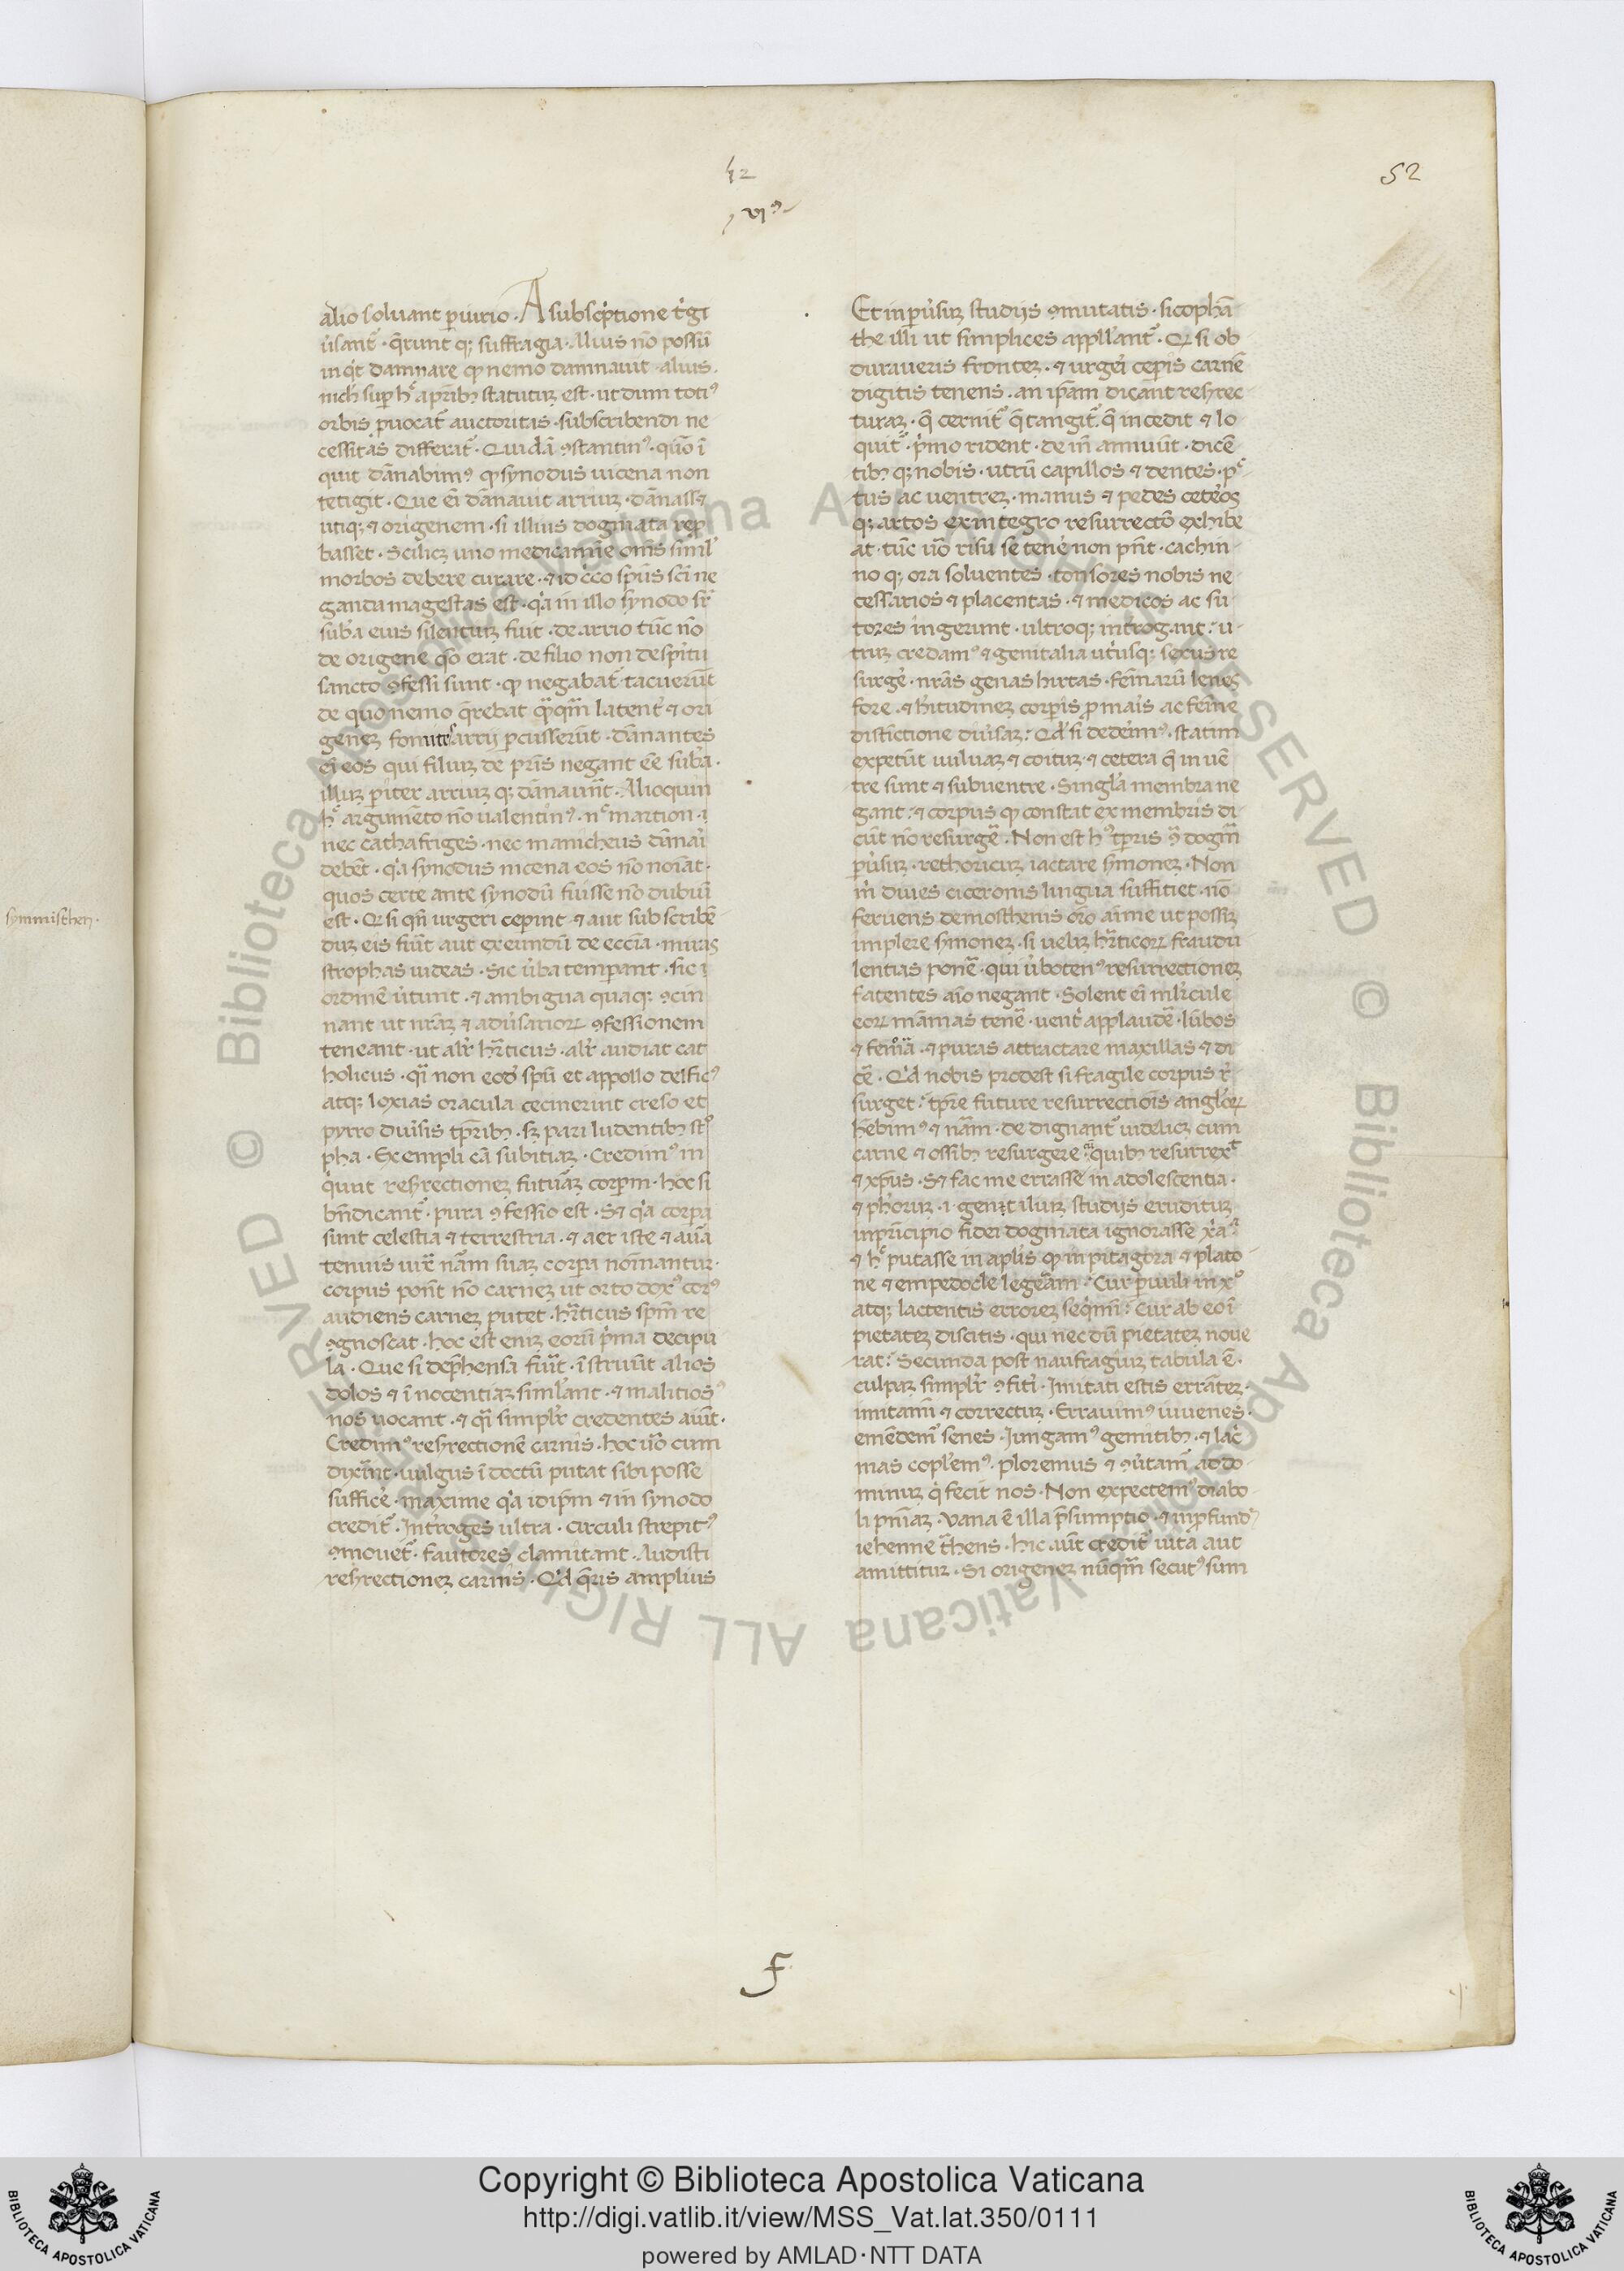 52
42
vi
alio soluant ꝑiurio · A subsc͛ptione t͛gi
u͛sant᷑ · q̄runt qꝫ suffragia · Alius nō possū
inq͛t damnare ꝙ nemo damnauit · alius ·
nich̄ suꝑ h᷑ apr̄ibꝫ statutuꝫ est · ut dum totiꝰ
orbis ꝓuocat᷑ auctoritas · subscribendi ne
cessitas differat᷑ · Quidā ꝯstantinꝰ · quō ī
quit dānabimꝰ ꝙ synodus nicena non
tetigit · Que eī dānauit arriuꝫ · dānass&
utiqꝫ & origenem · si illius dogmata repro
basset · Scilicꝫ uno medicamīe om̄s simĺ
morbos debere curare · & idc͛co spūs scī ne
ganda magestas est · q͛a in illo synodo sr̄
sub᷑a eius silentuꝫ fuit · de arrio tūc nō
de origene qō erat · de filio non de sp̄itu
sancto ꝯfessi sunt · ꝙ negabat᷑ · tacuerūt
de quo nemo q̄rebat
geneꝫ fontē arrij ꝑcusserūt · dānantes
eī eos qui filiuꝫ de pr̄is negant ēē sub᷑a ·
illuꝫ ꝑiter arriuꝫ qꝫ dānauūt · Alioquin
h᷑ argumēto nō ualentinꝰ · n᷑ martion · ī
nec cathafriges · nec manicheus dānari
debēt · q͛a synodus nicena eos nō noīat ·
quos certe ante synodū fuisse nō dubiū
est · Qꝫ si qn̄ urgeri ceperint & aut subscribē
duꝫ eis fuīt aut exeundū de eccīa · miras
strophas uideas · Sic u͛ba temꝑant · sic ī
ordinē u͛tunt · & ambigua quaqꝫ ꝯcin
nant ut nr̄aꝫ & adu͛sarioꝝ ꝯfessionem
teneant · ut alr̄ hr̄ticus · alr̄ audiat cat
holicus · qͣi non eod̄ spū et appollo delficꝰ
atqꝫ loxias oracula cecinerint creso et
pyrro diu͛sis tp̄ribꝫ · sꝫ pari ludentibꝫ stͦ
pha · Exempli cā subitiaꝫ · Credimꝰ in
q͛unt resr̄rectioneꝫ futurāꝫ corꝑm · hoc si
bn̄ dicant᷑ · pura ꝯfessio est · S& q͛a corpa
sunt celestia & terrestria · & aer iste & aurā
tenuis iuxͣ nām suaꝫ corpa noīnantur ·
corpus ponūt nō carneꝫ ut ortodoxꝰ corꝰ
audiens carneꝫ putet · hr̄ticus spm̄ re
ꝯgnoscat · hoc est eniꝫ eorū p͛ma decipu
la · Que si dep̄hensa fuīt · ī struūt alios
dolos & ī nocentiaꝫ siml̄ant · & malitiosꝰ
nos uocant · & qͣi simplr̄ credentes aiūt ·
Credimꝰ resr̄rectionē carnis · hoc uō cum
dixīnt · uulgus ī doctū putat sibi posse
suffice᷑ · maxime q͛a idip̄m & in synodo
credit᷑ · Int͛roges ultra · circuli strepitꝰ
ꝯmouet᷑ · fautores clamitant · Audisti
resr̄rectioneꝫ carnis · Qd̄ q̄ris amplius
Et in ꝑu͛suꝫ studijs ꝯmutatis · sicophā
the illi ut simplices appl̄lant᷑ · Qꝫ si ob
duraueris fronteꝫ · & urgeī ceꝑis carnē
digitis tenens · an ip̄am dicant resr̄rec
turaꝫ · q̄ cernit᷑ q̄ tangit᷑ q̄ incedit & lo
quit᷑ · p͛mo rident · de in̄ annuūt · dicē
tibꝫ qꝫ nobis · utrū capillos & dentes · p᷑
tus ac uentreꝫ · manus & pedes ceteros
qꝫ artos ex integro resurrectō exhibe
at · tūc uō risu se tene᷑ non pn̄t · cachin
no qꝫ ora soluentes · tonsores nobis ne
cessarios & placentas · & medicos ac su
tores ingerunt · ultroqꝫ int͛rogant · u
truꝫ credamꝰ & genitalia utriusqꝫ sexus re
surge᷑ · nr̄as genas hirtas · femīnarū lenes
fore · & hitudineꝫ corꝑis ꝓ maris ac femīne
distīctione diu͛saꝫ · Qd̄ si dederimꝰ · statim
expetūt uuluaꝫ & coituꝫ · & cetera q̄ in uē
tre sunt & sub uentre · Singl̄a membra ne
gant · & corpus ꝙ constat ex membris di
cūt nō resurge᷑ · Non est hꝰ tp̄ris ꝯ͛ dogm̄
ꝑu͛suꝫ · rethoricuꝫ iactare s͛moneꝫ · Non
m̄ diues ciceronis lingua suffitiet · nō
feruens demosthenis orō aīme ut possiꝫ
implere s͛moneꝫ · si ueliꝫ hr̄ticoꝝ fraudu
lentias ponē᷑ · qui u͛botenꝰ resurrectioneꝫ
fatentes aīo negant · Solent eī ml̄rcule
eoꝝ māmas tenē᷑ · uent͛ applaudē᷑ · lūbos
& femora · & puras attractare maxillas & di
cē᷑ · Qd̄ nobis prodest si fragile corpus r᷑
surget · tp̄re future resurrectiōis angl̄oꝝ
hēbimꝰ & nām · de dignant᷑ uidelicꝫ cum
carne & ossibꝫ resurgere quibꝫ resurrex͛t
& xp̄us · S& fac me errasse in adolescentia ·
& ph̄oruꝫ · i · gentiliuꝫ studijs erudituꝫ
in pr̄incipio fidei dogmata ignorasse
& h᷑ putasse in apl̄is ꝙ in pitagora & plato
ne & empedocle legerām · Cur ꝑuuli in xͦ
atqꝫ lactentis erroreꝫ seq͛mī · cur ab eo ī
pietateꝫ discitis · qui nec dū pietateꝫ noue
rat · Secunda post naufragiuꝫ tabula ē ·
culpaꝫ simplr̄ ꝯfiti᷑ · Imitati estis errāteꝫ ·
imitamī & correctuꝫ · Errauimꝰ iuuenes ·
emēdem᷑ senes · Jungamꝰ gemitibꝫ · & lac͛
mas copl̄emꝰ · ploremus & ꝯu͛tam᷑ ad do
minuꝫ q͛ fecit nos · Non expectemꝰ diabo
li pn̄iaꝫ · Vana ē illa p̄sumptio · & in ꝓfundū
iehenne t͛hens · hic aūt credit᷑ uita aut
amittitur · Si origeneꝫ nūqm̄ secutꝰ sum
f
symmisthen ·
Copyright © Biblioteca Apostolica Vaticana
http://digi.vatlib.it/view/MSS_Vat.lat.350/0111
powered by AMLAD·NTT DATA